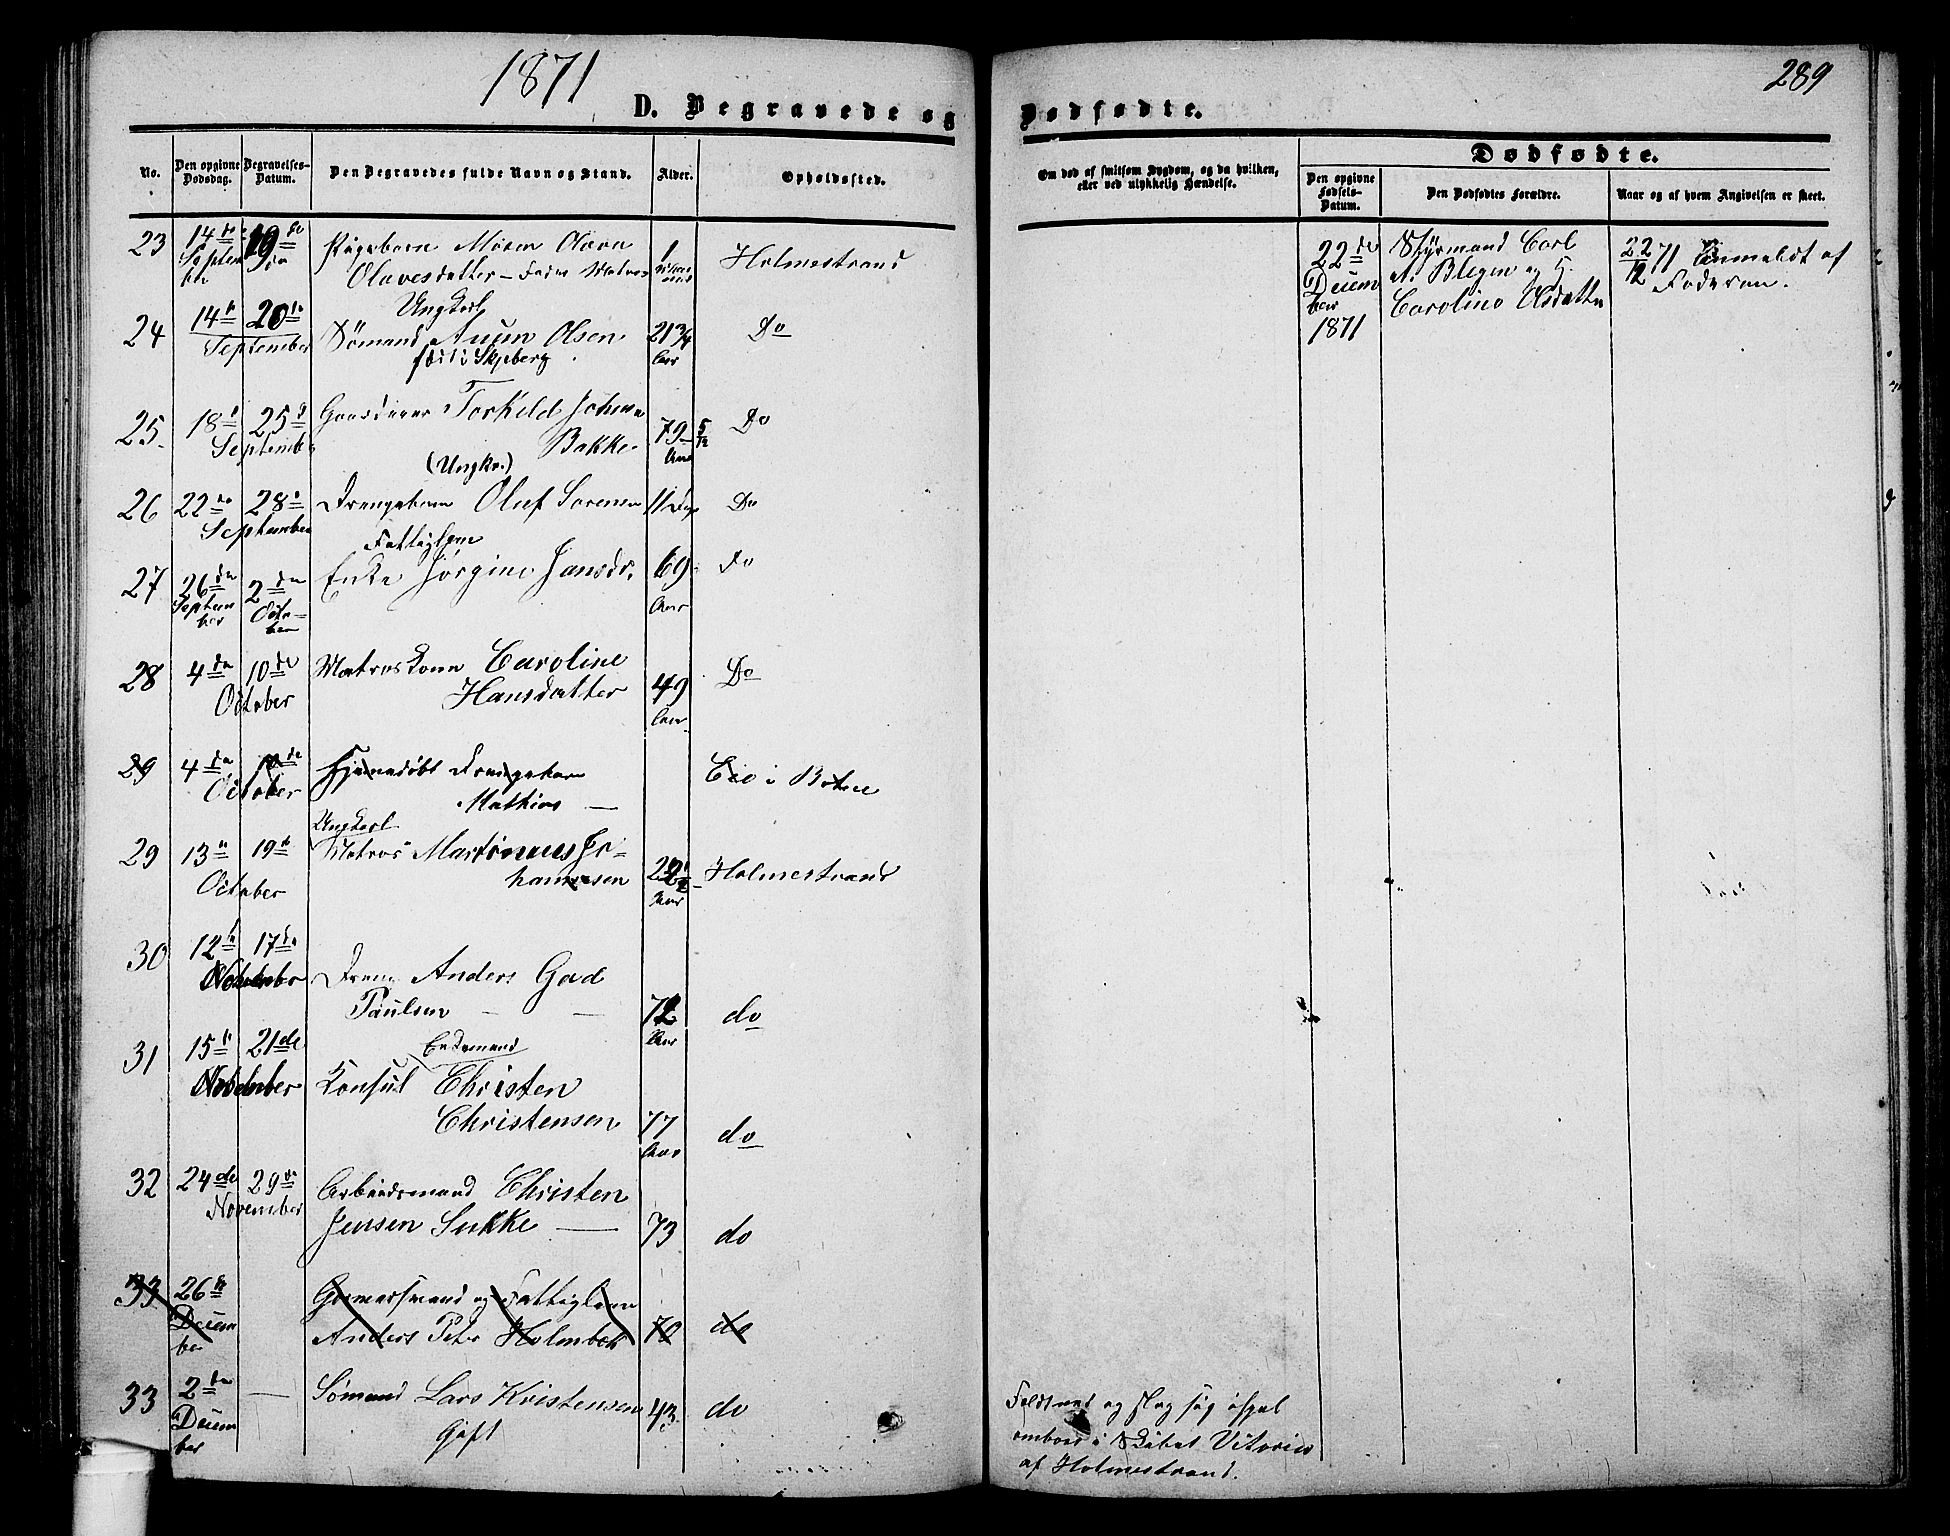 1871
289
D. Begravede og Dødfødte.
No.
Den opgivne Dødsdag.
Begravelses-Datum.
Den Begravedes fulde Navn og Stand.
Alder.
Opholdssted.
Om død af smitsom Sygdom, og da hvilken,
eller ved ulykkelig Hændelse.
Dødfødte.
Den opgivne Fødsels-Datum.
Den Dødfødtes Forældre.
Naar og af hvem Angivelsen er skeet.
23 14de 19de Pigebarn Maren 1 Holmestrand
September do Olavesdatter - Fader Matros
Ungkarl
24 14de 20de Sømand Olsen 21 3/4 Do
September Aar
25 18de 25de Torkild Johnsen 79 5/12 Do
September Bakke Aar
(Ungkr.)
26 22de 28de Drengebarn Oluf Sorensen 11 Dage Do
September
Fattiglem
27 26de 2den Enke Jørgine Jansdr. 69 Do
September October Aar
28 4de 10de Matroskone Caroline
October Hansdatter 49 Do
Aar
29 4de 10de Hjemmedøbt Drengebarn i Botne
October Mathias —
Ungkarl
29 13de 19de Matros Martinius Jo-
October hannesen 22 1/2 Holmestrand
Aar
30 12te 17de
November Dreng Anders Gad
Paulsen — — 12 do
Aar
31 15de 21de Enkemand
November Konsul Christen
Christensen 77 do
Aar
32 24de 29de Arbeidsmand Christen
November Jensen Sukke — 73 do
33 26de og Fattiglem
Decem Anders Peter Holmbek 70 do
ber
33 2den — Sømand Lars Kristensen 43 do
Decem Gift
ber
22de
Decem
ber
1871
Styrmand Carl
A. Blegen og H.
Caroline Olsdatter
22/12 71 Anmeldt af
Faderen.
Faldt ned og slog sig ihjel
ombord i Skibet Vitoria
af Holmestrand.